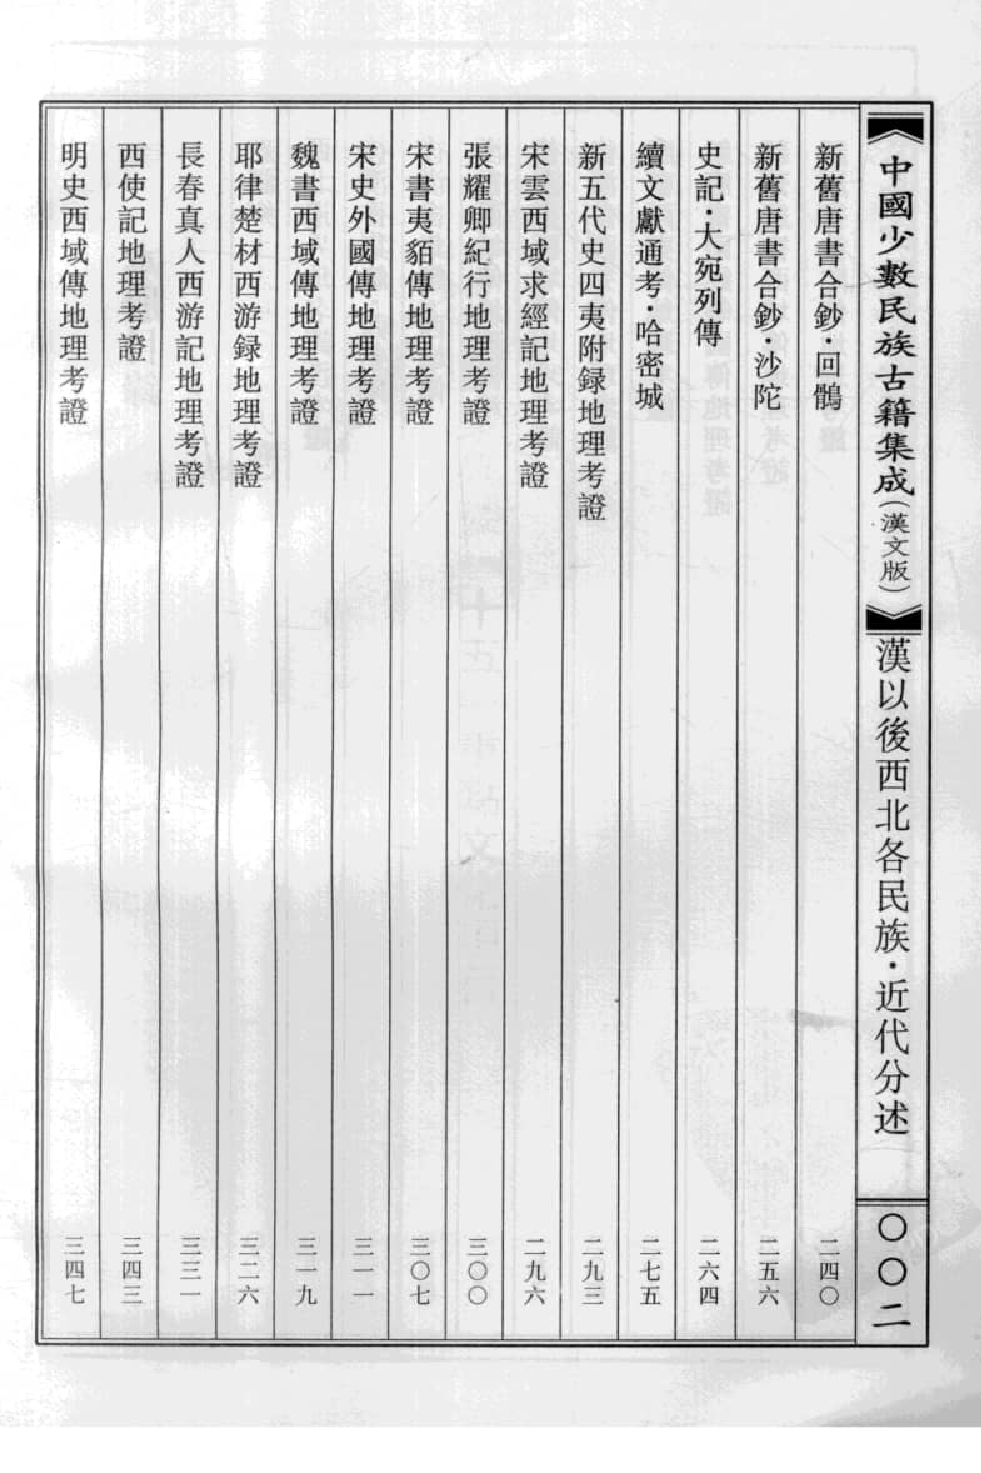 中國少數民族古籍集成（漢文版）
漢以後西北各民族·近代分述
〇〇二
新舊唐書合鈔·回鶻
二四〇
新舊唐書合鈔·沙陀
二五六
史記·大宛列傳
二六四
續文獻通考·哈密城
二七五
新五代史四夷附録地理考證
二九三
宋雲西域求經記地理考證
二九六
張耀卿紀行地理考證
三〇〇
宋書夷貊傳地理考證
三〇七
宋史外國傳地理考證
三一一
魏書西域傳地理考證
三一九
耶律楚材西游録地理考證
三二六
長春真人西游記地理考證
三三一
西使記地理考證
三四三
明史西域傳地理考證
三四七